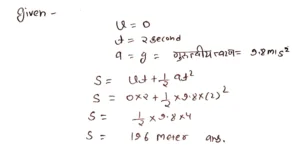 Given -
u = 0
t = 2 second
a = g = गुरुत्वीय त्वरण = 9.8 m/s²
S = ut + 1/2 at²
S = 0×2 + 1/2 × 9.8 × (2)²
S = 1/2 × 9.8 × 4
S = 196 meter ans.